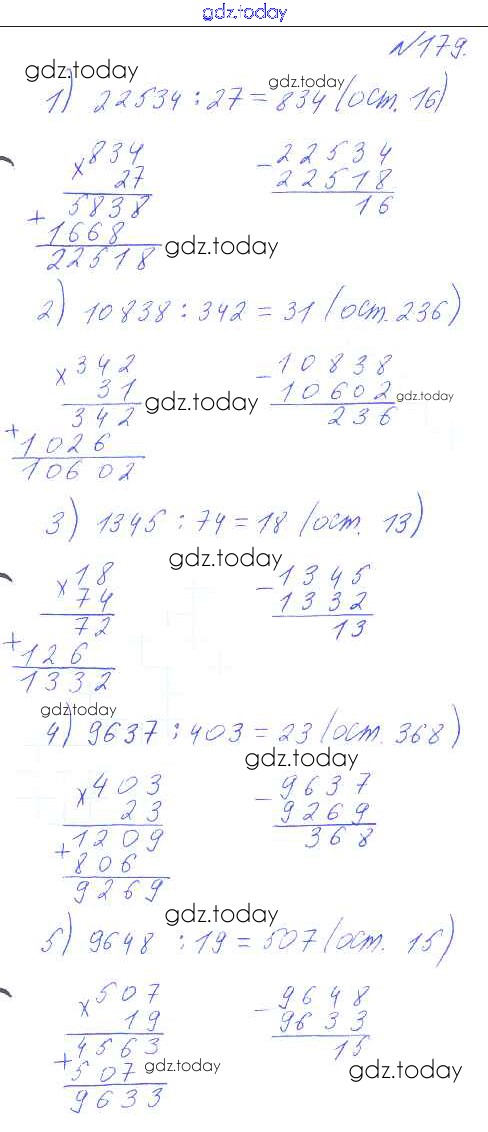 gdz.today
№179.
gdz.today
gdz.today
1) 22534 : 27 = 834 (ост. 16)
× 834
27
5838
+ 1668
22518
- 22534
22518
16
gdz.today
2) 10838 : 342 = 31 (ост. 236)
× 342
31
342
+ 1026
10602
- 10838
10602
236
gdz.today
gdz.today
3) 1345 : 74 = 18 (ост. 13)
gdz.today
× 18
74
72
+ 126
1332
- 1345
1332
13
gdz.today
4) 9637 : 403 = 23 (ост. 368)
gdz.today
× 403
23
1209
+ 806
9269
- 9637
9269
368
gdz.today
5) 9648 : 19 = 507 (ост. 15)
× 507
19
4563
+ 507
9633
- 9648
9633
15
gdz.today
gdz.today